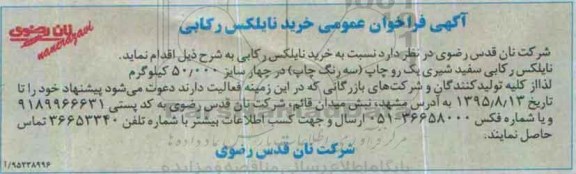 آگهی فراخوان عمومی خرید نایلکس رکابی
نان رضوی
nanerazavi
شرکت نان قدس رضوی در نظر دارد نسبت به خرید نایلکس رکابی به شرح ذیل اقدام نماید.
نایلکس رکابی سفید شیری یک رو چاپ (سه رنگ چاپ) در چهار سایز ۵۰/۰۰۰ کیلوگرم
لذا از کلیه تولیدکنندگان و شرکت‌های بازرگانی که در این زمینه فعالیت دارند دعوت می‌شود پیشنهاد خود را تا
تاریخ ۱۳۹۵/۸/۱۳ به آدرس مشهد، نبش میدان قائم، شرکت نان قدس رضوی به کد پستی ۹۱۸۹۹۶۶۶۳۱
و یا شماره فکس ۳۶۶۵۸۰۰۰-۰۵۱ ارسال و جهت کسب اطلاعات بیشتر با شماره تلفن ۳۶۶۵۳۳۴۰ تماس
حاصل نمایند.
شرکت نان قدس رضوی
۱/۹۵۳۳۸۹۹۶
پایگاه اطلاع رسانی مناقصه و مزایده